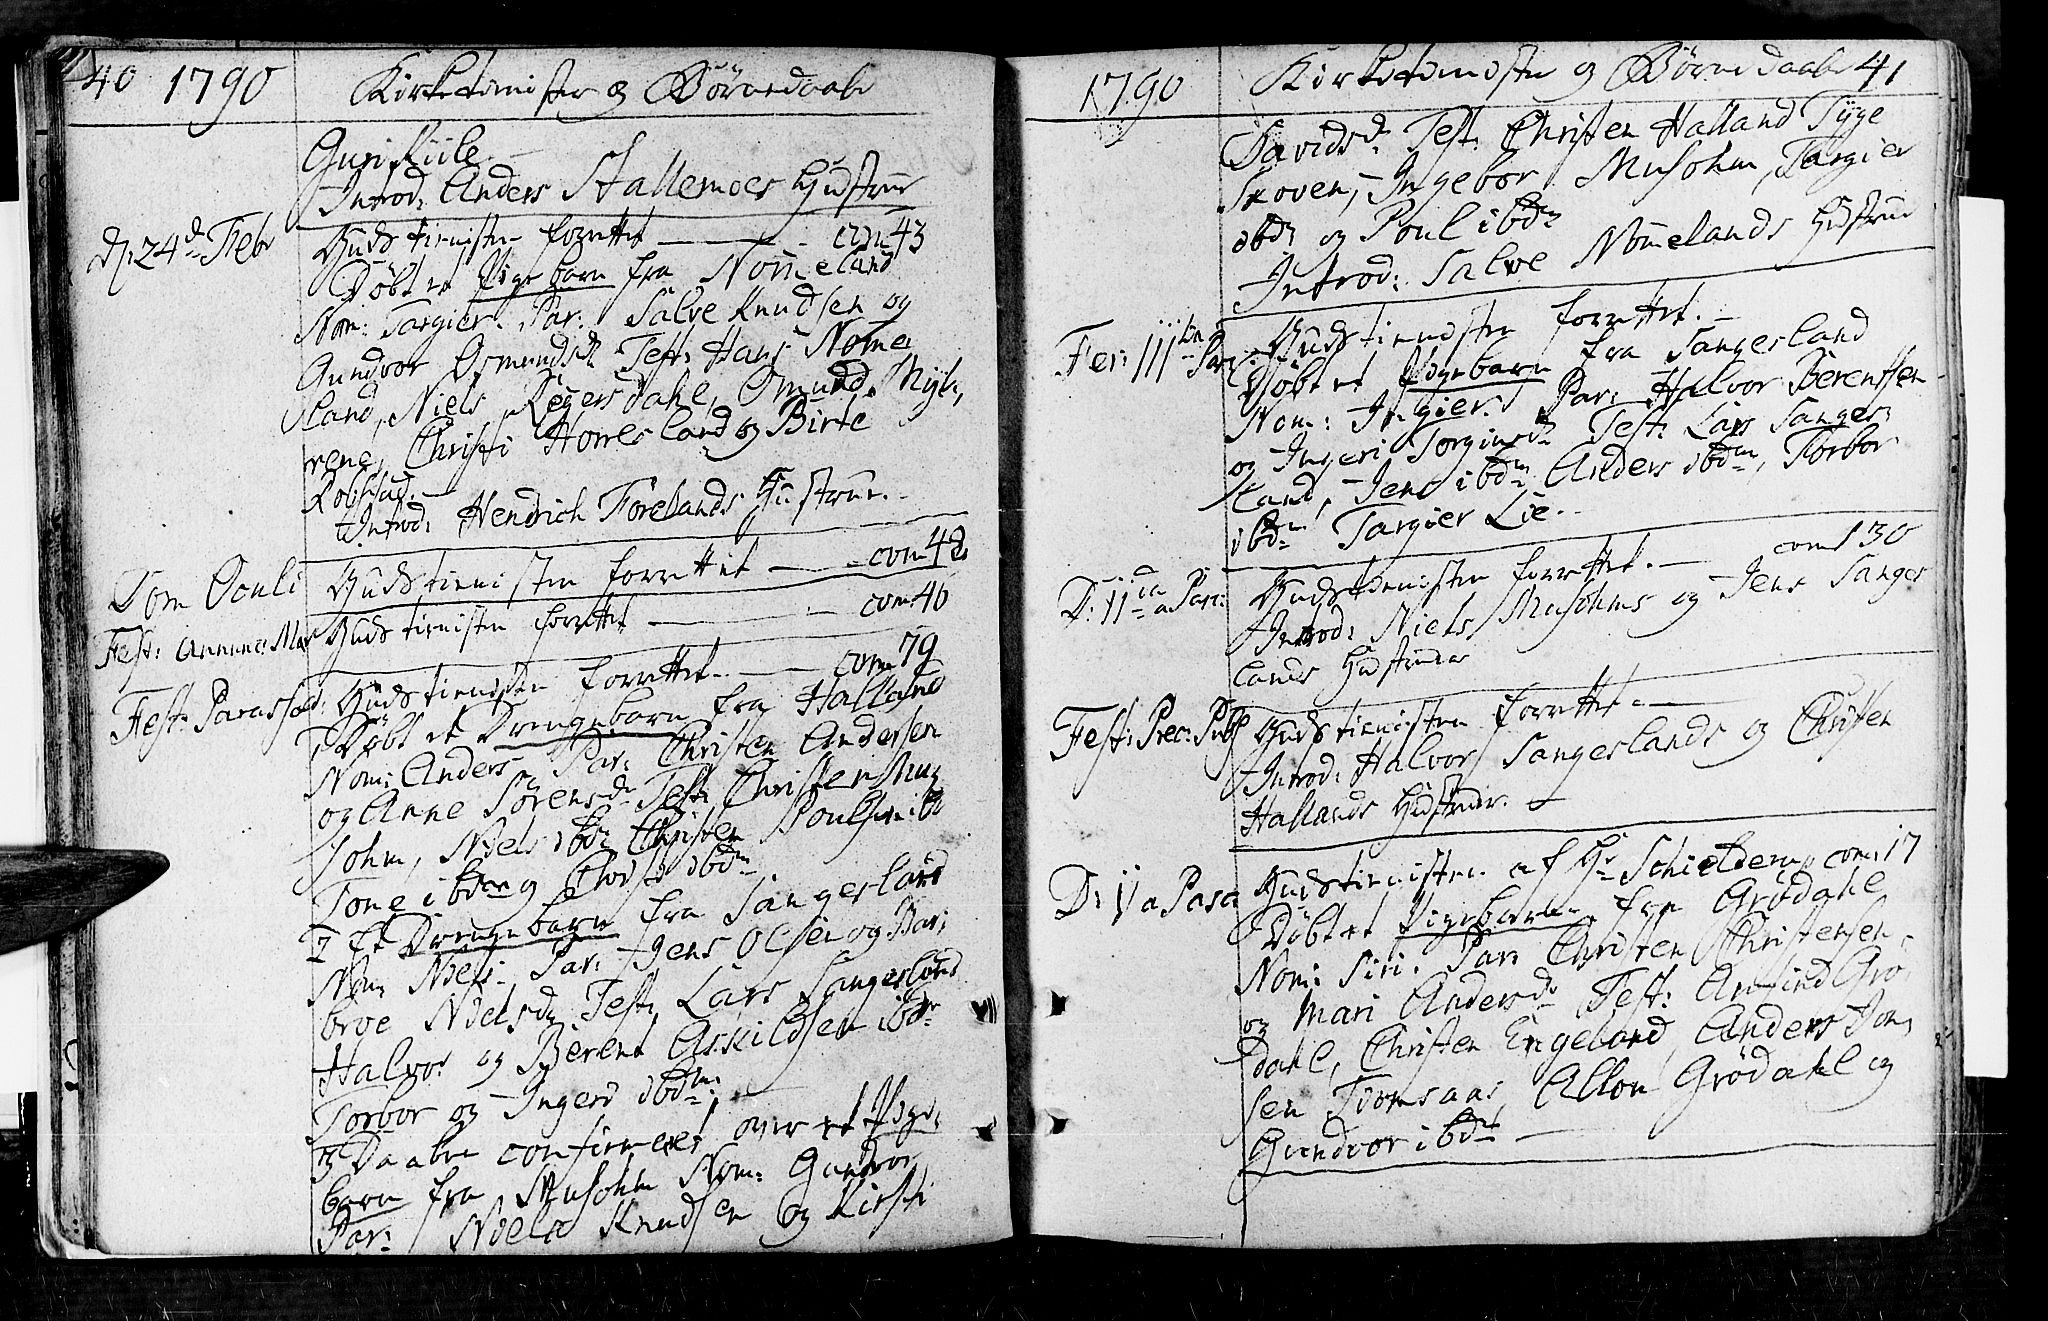 40 1790 Kirketienister og Børnedaabe
Guri Kiile
Introd: Anders Hallemoes Hustrue
D. 24de Febr Gudstienisten forrettet — com 43
Døbt et Pigebarn fra Nomeland
Nom: Targier. Par: Salve Knudsen og
Gundvor Osmundsd. Test: Hans Nome
land, Niels Røgersdahl, Omund Myh
rene, Christi Homesland og Birte
Robstad.
Introd: Hendrich Forelands Hustrue.
Dom Oculi Gudstienisten forrettet — com 42
Fest: Annunc: Mar Gudstienisten forrettet — com 46
Fest: Parascs: Gudstienisten forrettet — com 79
Døbt et Drengebarn fra Halland
Nom: Anders Par: Christen Andersen
og Anne Sørensd. Test: Christen Mu
sohm, Niels ibd. Christen Poulsen ib
Tone ibdm og ibdm
Et Drengebarn fra Sangesland
Nom: Niels. Par: Jens Olsen og Bar
broe Nielsd. Test: Lars Sangesland
Halvor og Berent Askildsen ibdm
Torbor og Inger ibdm:
Daaben confirmeret over et Pige
barn fra Musohm Nom: Gundvor
Par: Niels Knudsen og Kirsti
1790 Kirketienister og Børnedaabe 41
Davidsd. Test: Christen Halland Tyge
Skoven, Ingebor Musohm, Targier
ibdm og Poul ibdm
Introd: Salve Nomelands Hustrue
Fer: IIItia Pasc: Gudstienisten forrettet.
Døbt et Pigebarn fra Sangesland
Nom: Ingier. Par: Halvor Berentsen
og Ingeri Torgiusd. Test: Lars Sanges
land, Jens ibdm Anders ibdm, Torbor
ibdm Targier Lie.
D: IIda a Pasc: Gudstienisten forrettet. — com 130
Introd: Niels Musohms og Jens Sanges
lands Hustruer
Fest: Prec: Publ Gudstienisten forrettet. —
Introd: Halvor Sangeslands og Christen
Hallands Hustruer. —
D: V a Pasca Gudstienisten af Hr Schielderup com 17
Døbt et Pigebarn fra Grødahl
Nom: Siri. Par: Christen Christensen
og Mari Andersd. Test: Anfind Grø
dahl, Christen Engeland, Anders Jon
sen Tiomsaas, Allou Grødahl og
Gundvor ibdm —